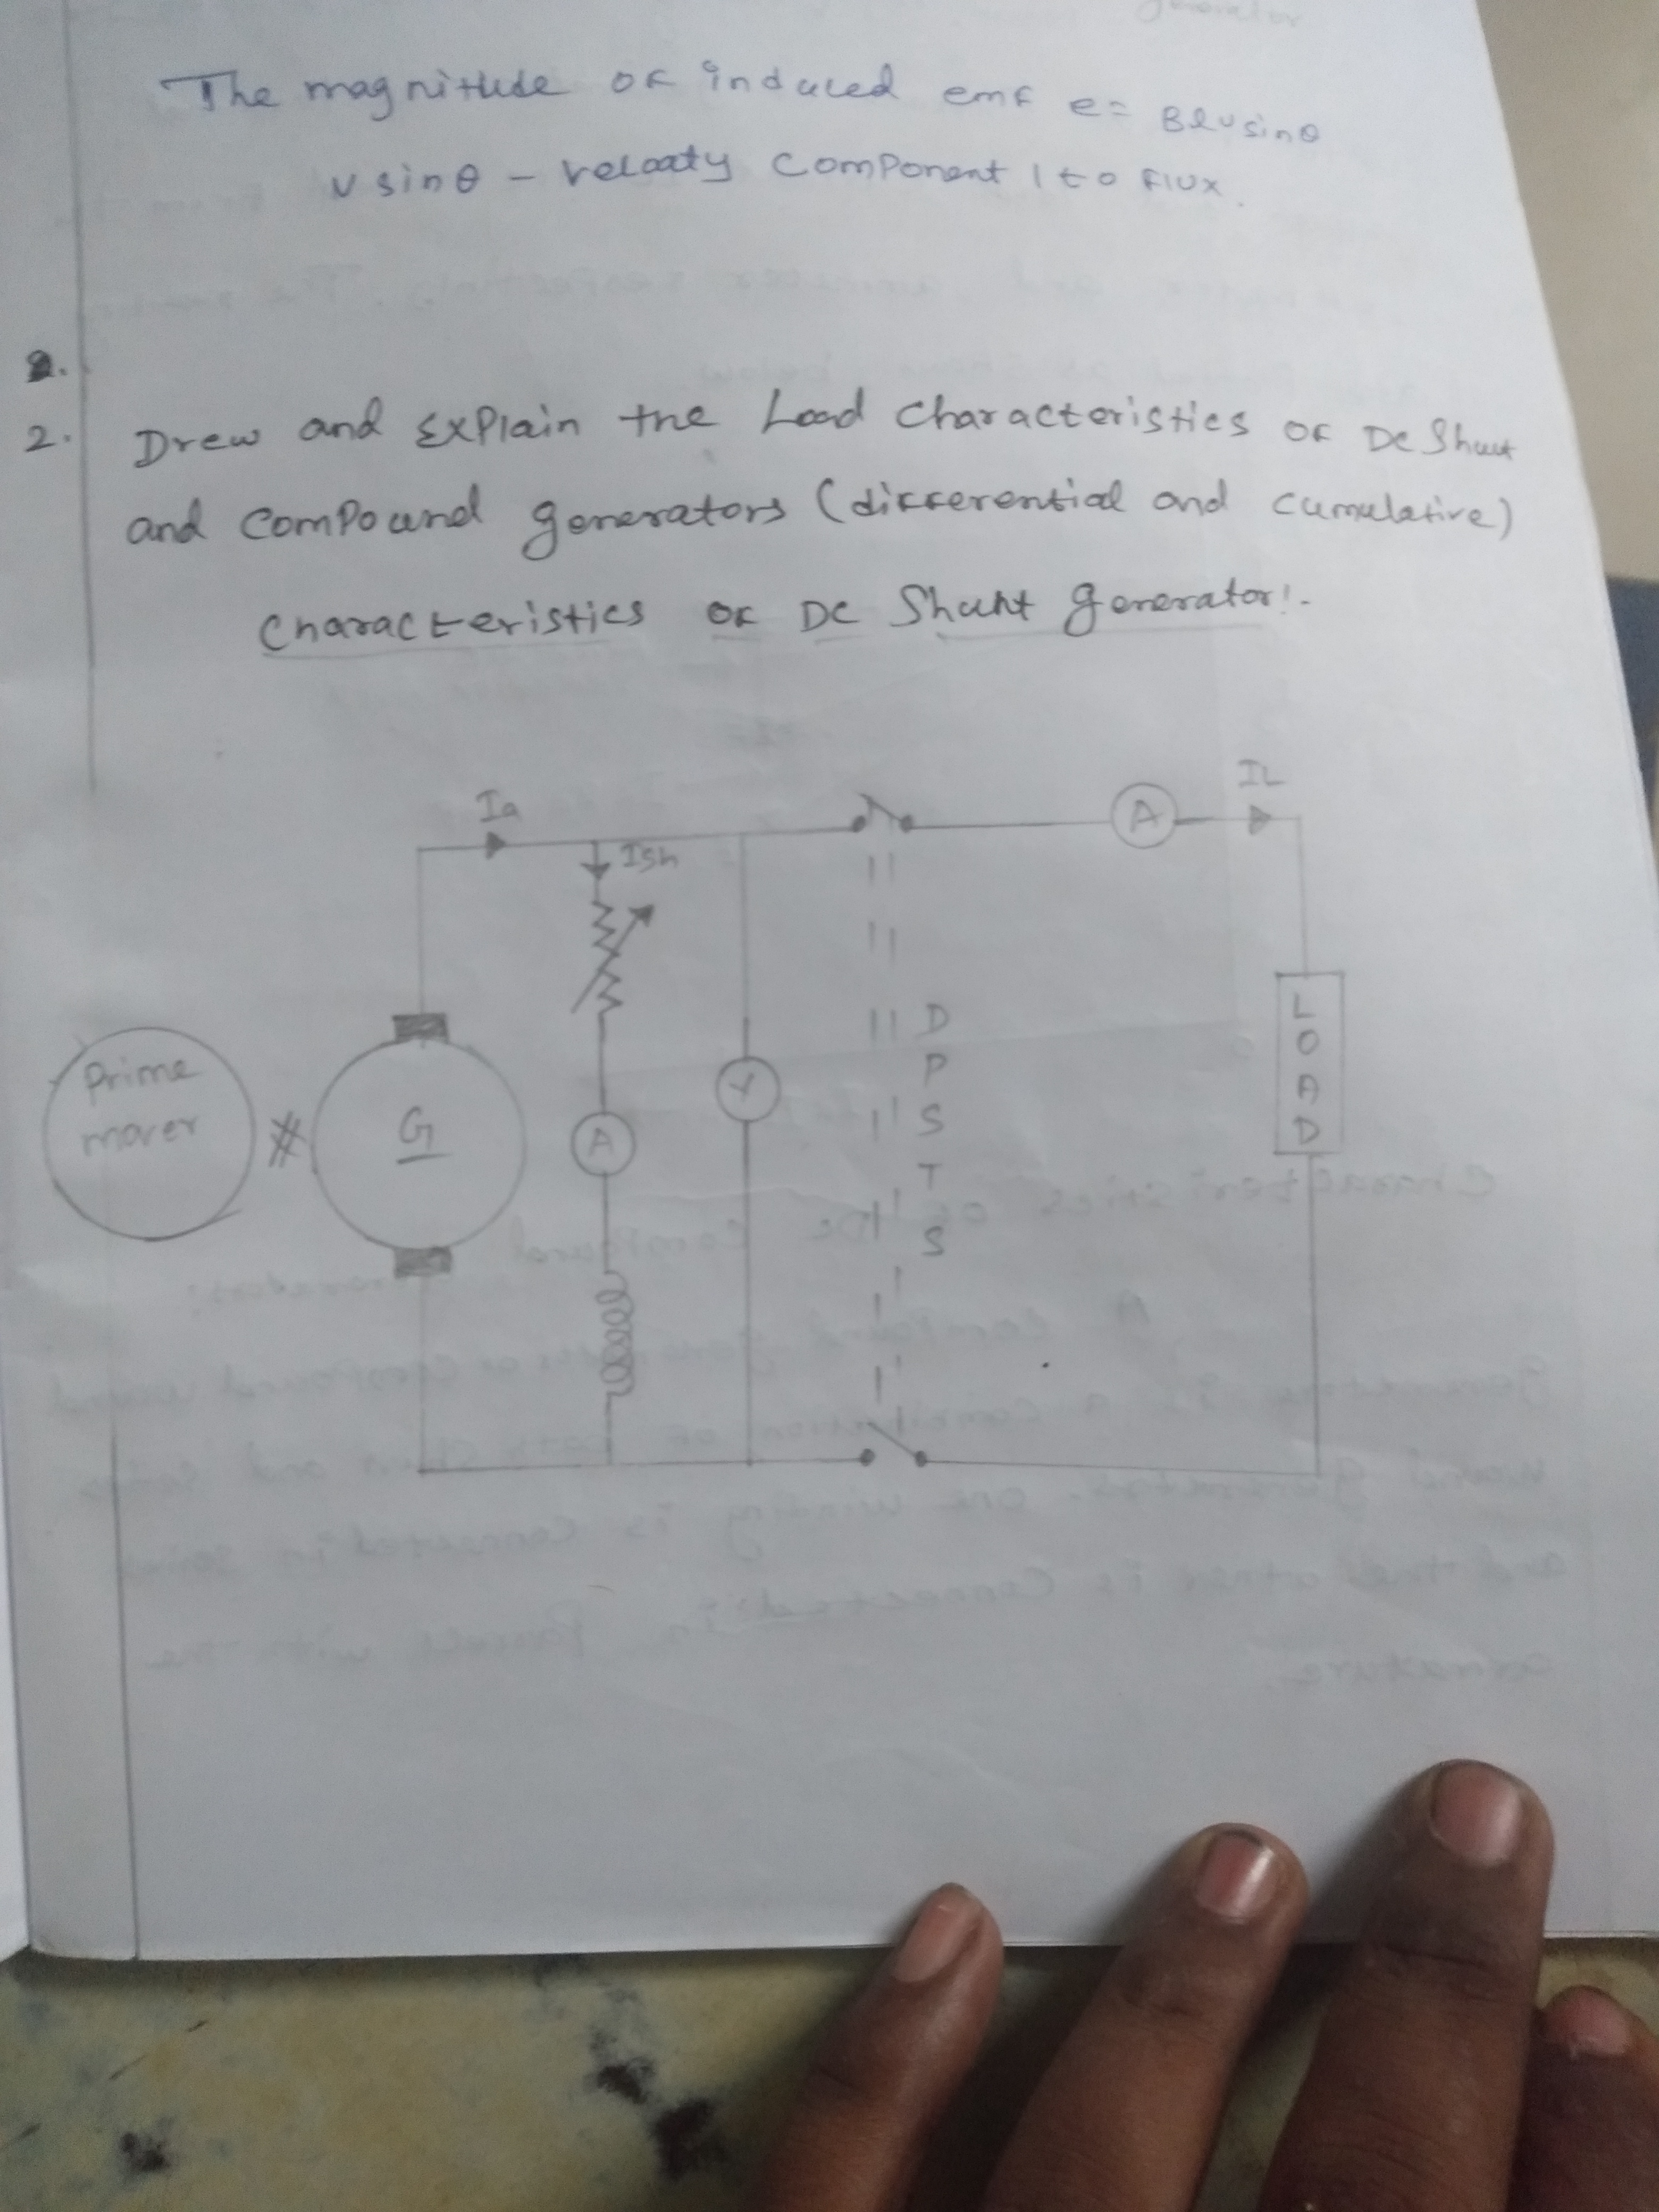 generator
The magnitude of induced emf e = Blv sinθ
v sinθ - velocity component ⊥ to flux.
2.
2. Drew and Explain the Load characteristics of DC Shunt
and compound generators (differential and cumulative)
characteristics of DC Shunt generator:-
Ia
Ish
A
IL
Prime
mover
G
A
V
DPSTS
LOAD